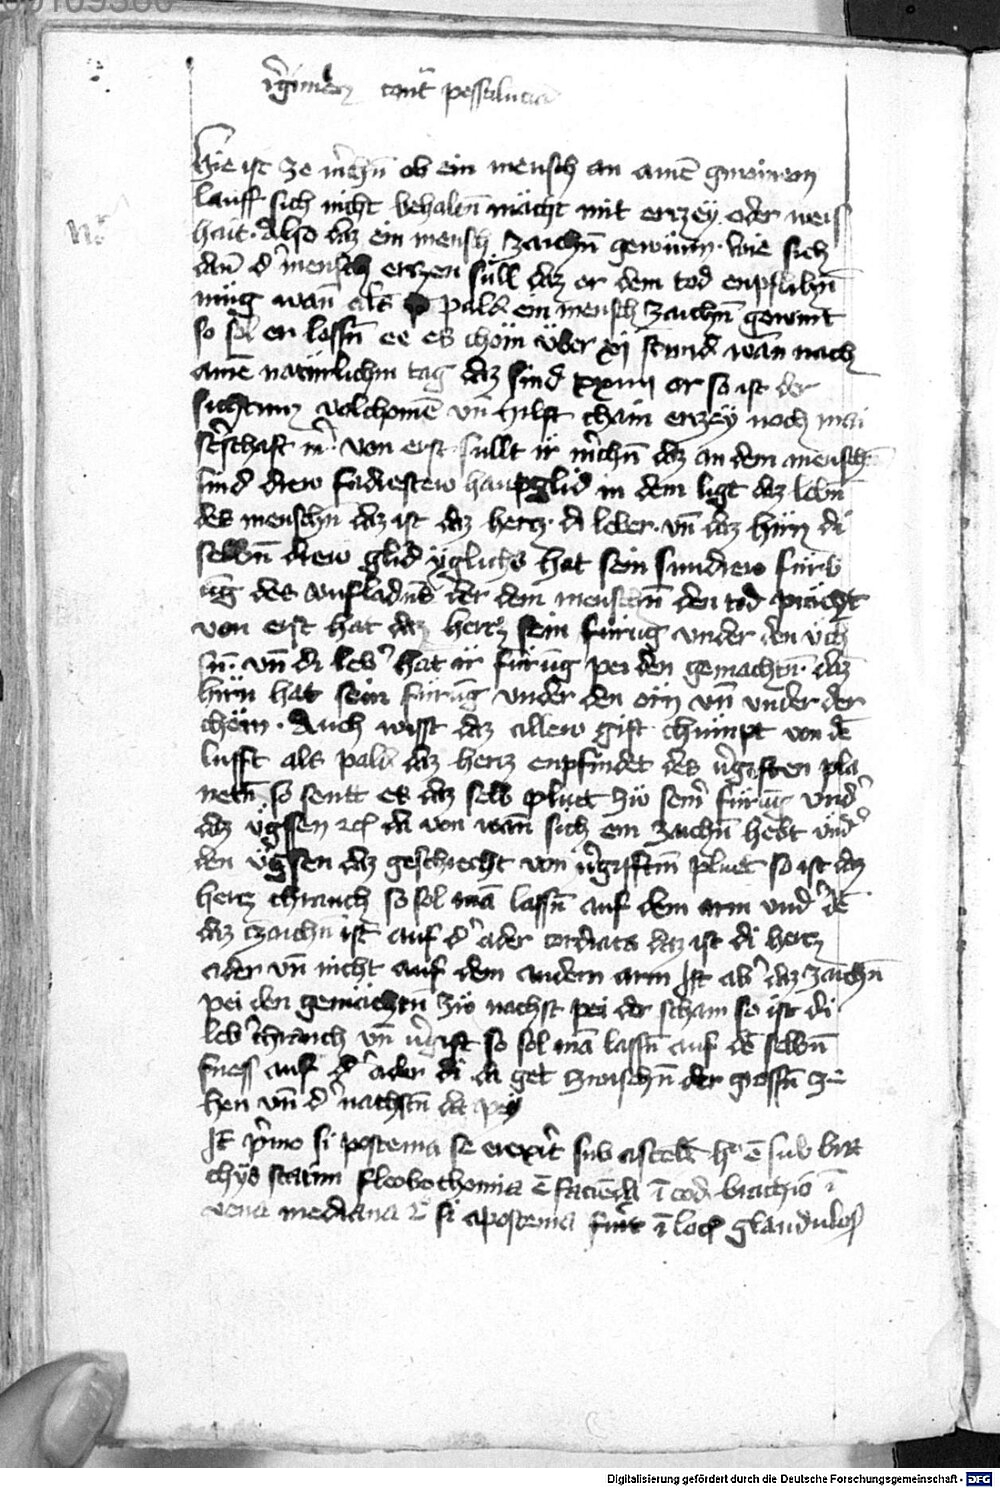 Regimen contra pestilencia
Nota
Hie ist ze merken ob ein mensch an ainem gmeinem
lauff sich nicht behalten mächt mit erczey oder weis
hait. Also daz ein mensch zaichen gewünn. wie sich
dan der mensch erczen süll daz er dem tod enpflihen
müg wan als pald ein mensch zaichen gewint
so sol er lassen ee es chöm über xij stund wan nach
ainem natürlichen tag daz sind xxiiij or so ist der
siechtum volchomen vnd hilft chain erczey noch mai
sterschaft nit. von erst sullt ir merken daz an dem menschen
sind drew haupglid in dem ligt daz leben
des menschen daz ist daz hercz. di leber. vnd daz hirn di
selben drew glid ygleichs hat sein sundrew fürb
ung des aufladens der dem menschen den tod pringt
von erst hat daz hercz sein fürung vnder den üch
sen. vnd di leber hat ir fürung pei den gemächten. daz
hirn hat sein fürung vnder den orn vnd vnder der
chein. Auch wisst daz allew gift chümpt von dem
lufft als pald daz hercz enpfindet des vergiften pla
neten so sentt es daz selb pluet zü seiner fürung vnder
daz ügssen etc da von wan sich ein zaichen hebt vnder
den ügsen daz geschiecht von vergifftem pluet so ist daz
hercz chranch so sol man lassen auf dem arm vnder dem
daz czaichen ist auf der ader cordiaca daz ist di hercz
ader vnd nicht auf dem andern arm Ist aber daz zaichen
pei den gemächten zü nachst pei der scham so ist di
leber chranch vnd vergift so sol man lassen auf dem selben
fuess auf der ader di da get zwischen der grossen ze
hen vnd der nachsten da pey
Item primo si postema se erexerit sub ascellis hoc est sub bra
chys statim fleobothomia est facienda in eodem brachio in
vena mediana Item si apostema fuerit in locis glandulosis
Digitalisierung gefördert durch die Deutsche Forschungsgemeinschaft - DFG